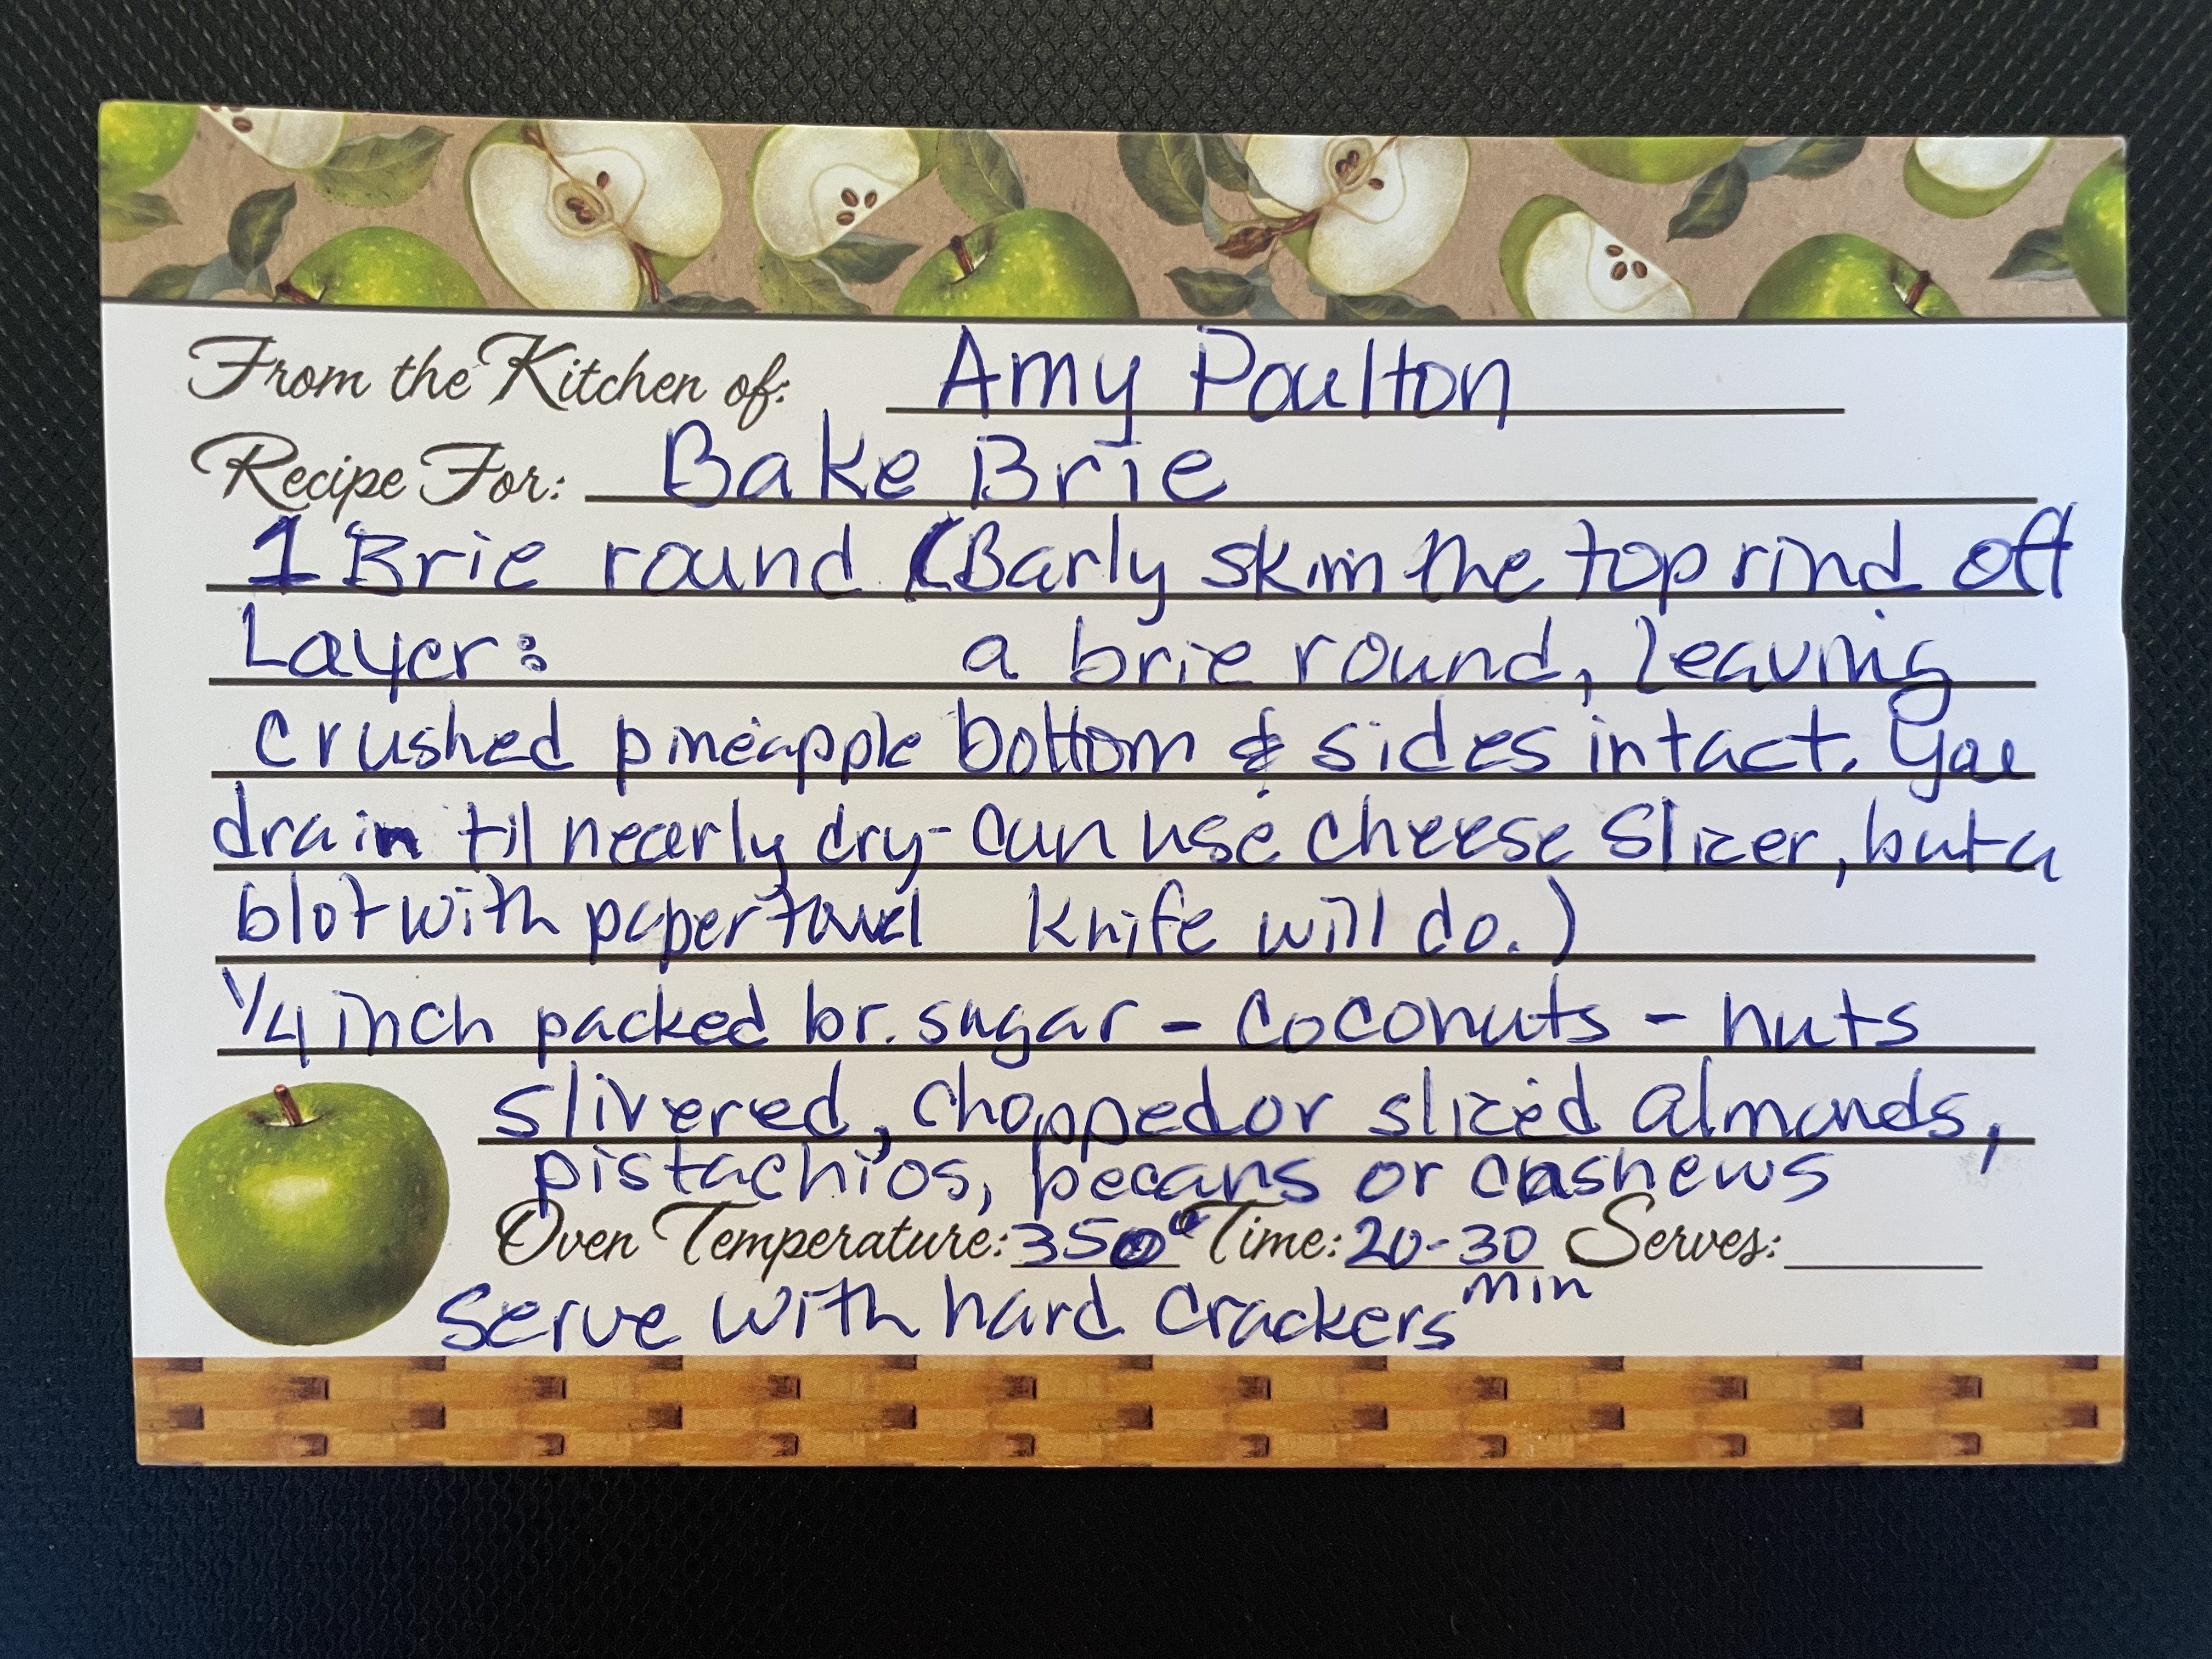 From the Kitchen of: Amy Poulton
Recipe For: Bake Brie
1 Brie round (Barly skim the top rind off
Layer: a brie round, leaving
crushed pineapple bottom & sides intact. You
drain til nearly dry- can use cheese slicer, but a
blot with paper towel knife will do.)
1/4 inch packed br. sugar - coconuts - nuts
slivered, chopped or sliced almonds,
pistachios, pecans or cashews
Oven Temperature: 350° Time: 20-30 Serves:
min
Serve with hard crackers